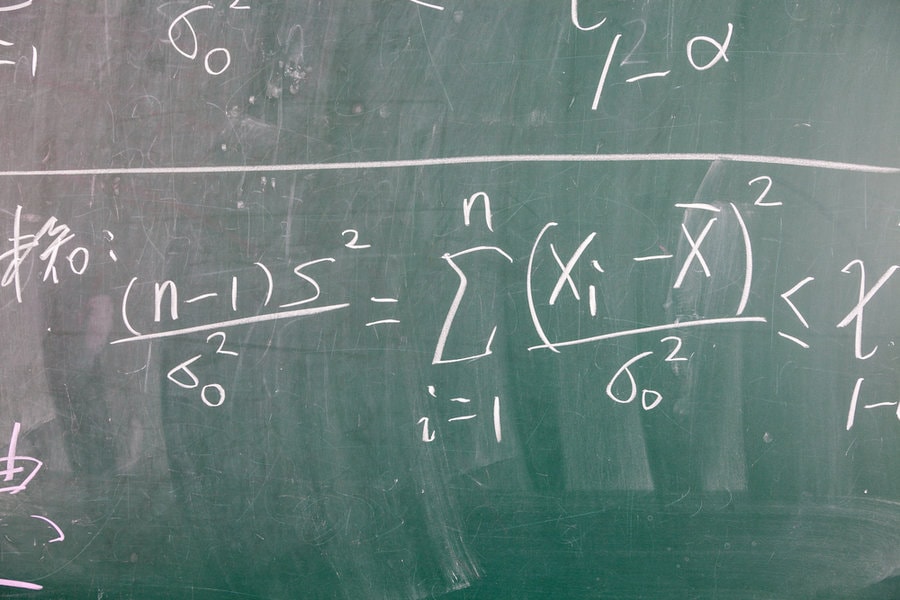 =1 σ₀² 1-α
(n-1)S²/σ₀² = ∑ⁿᵢ₌₁ (Xᵢ - X̄)²/σ₀² ≤ χ 1-